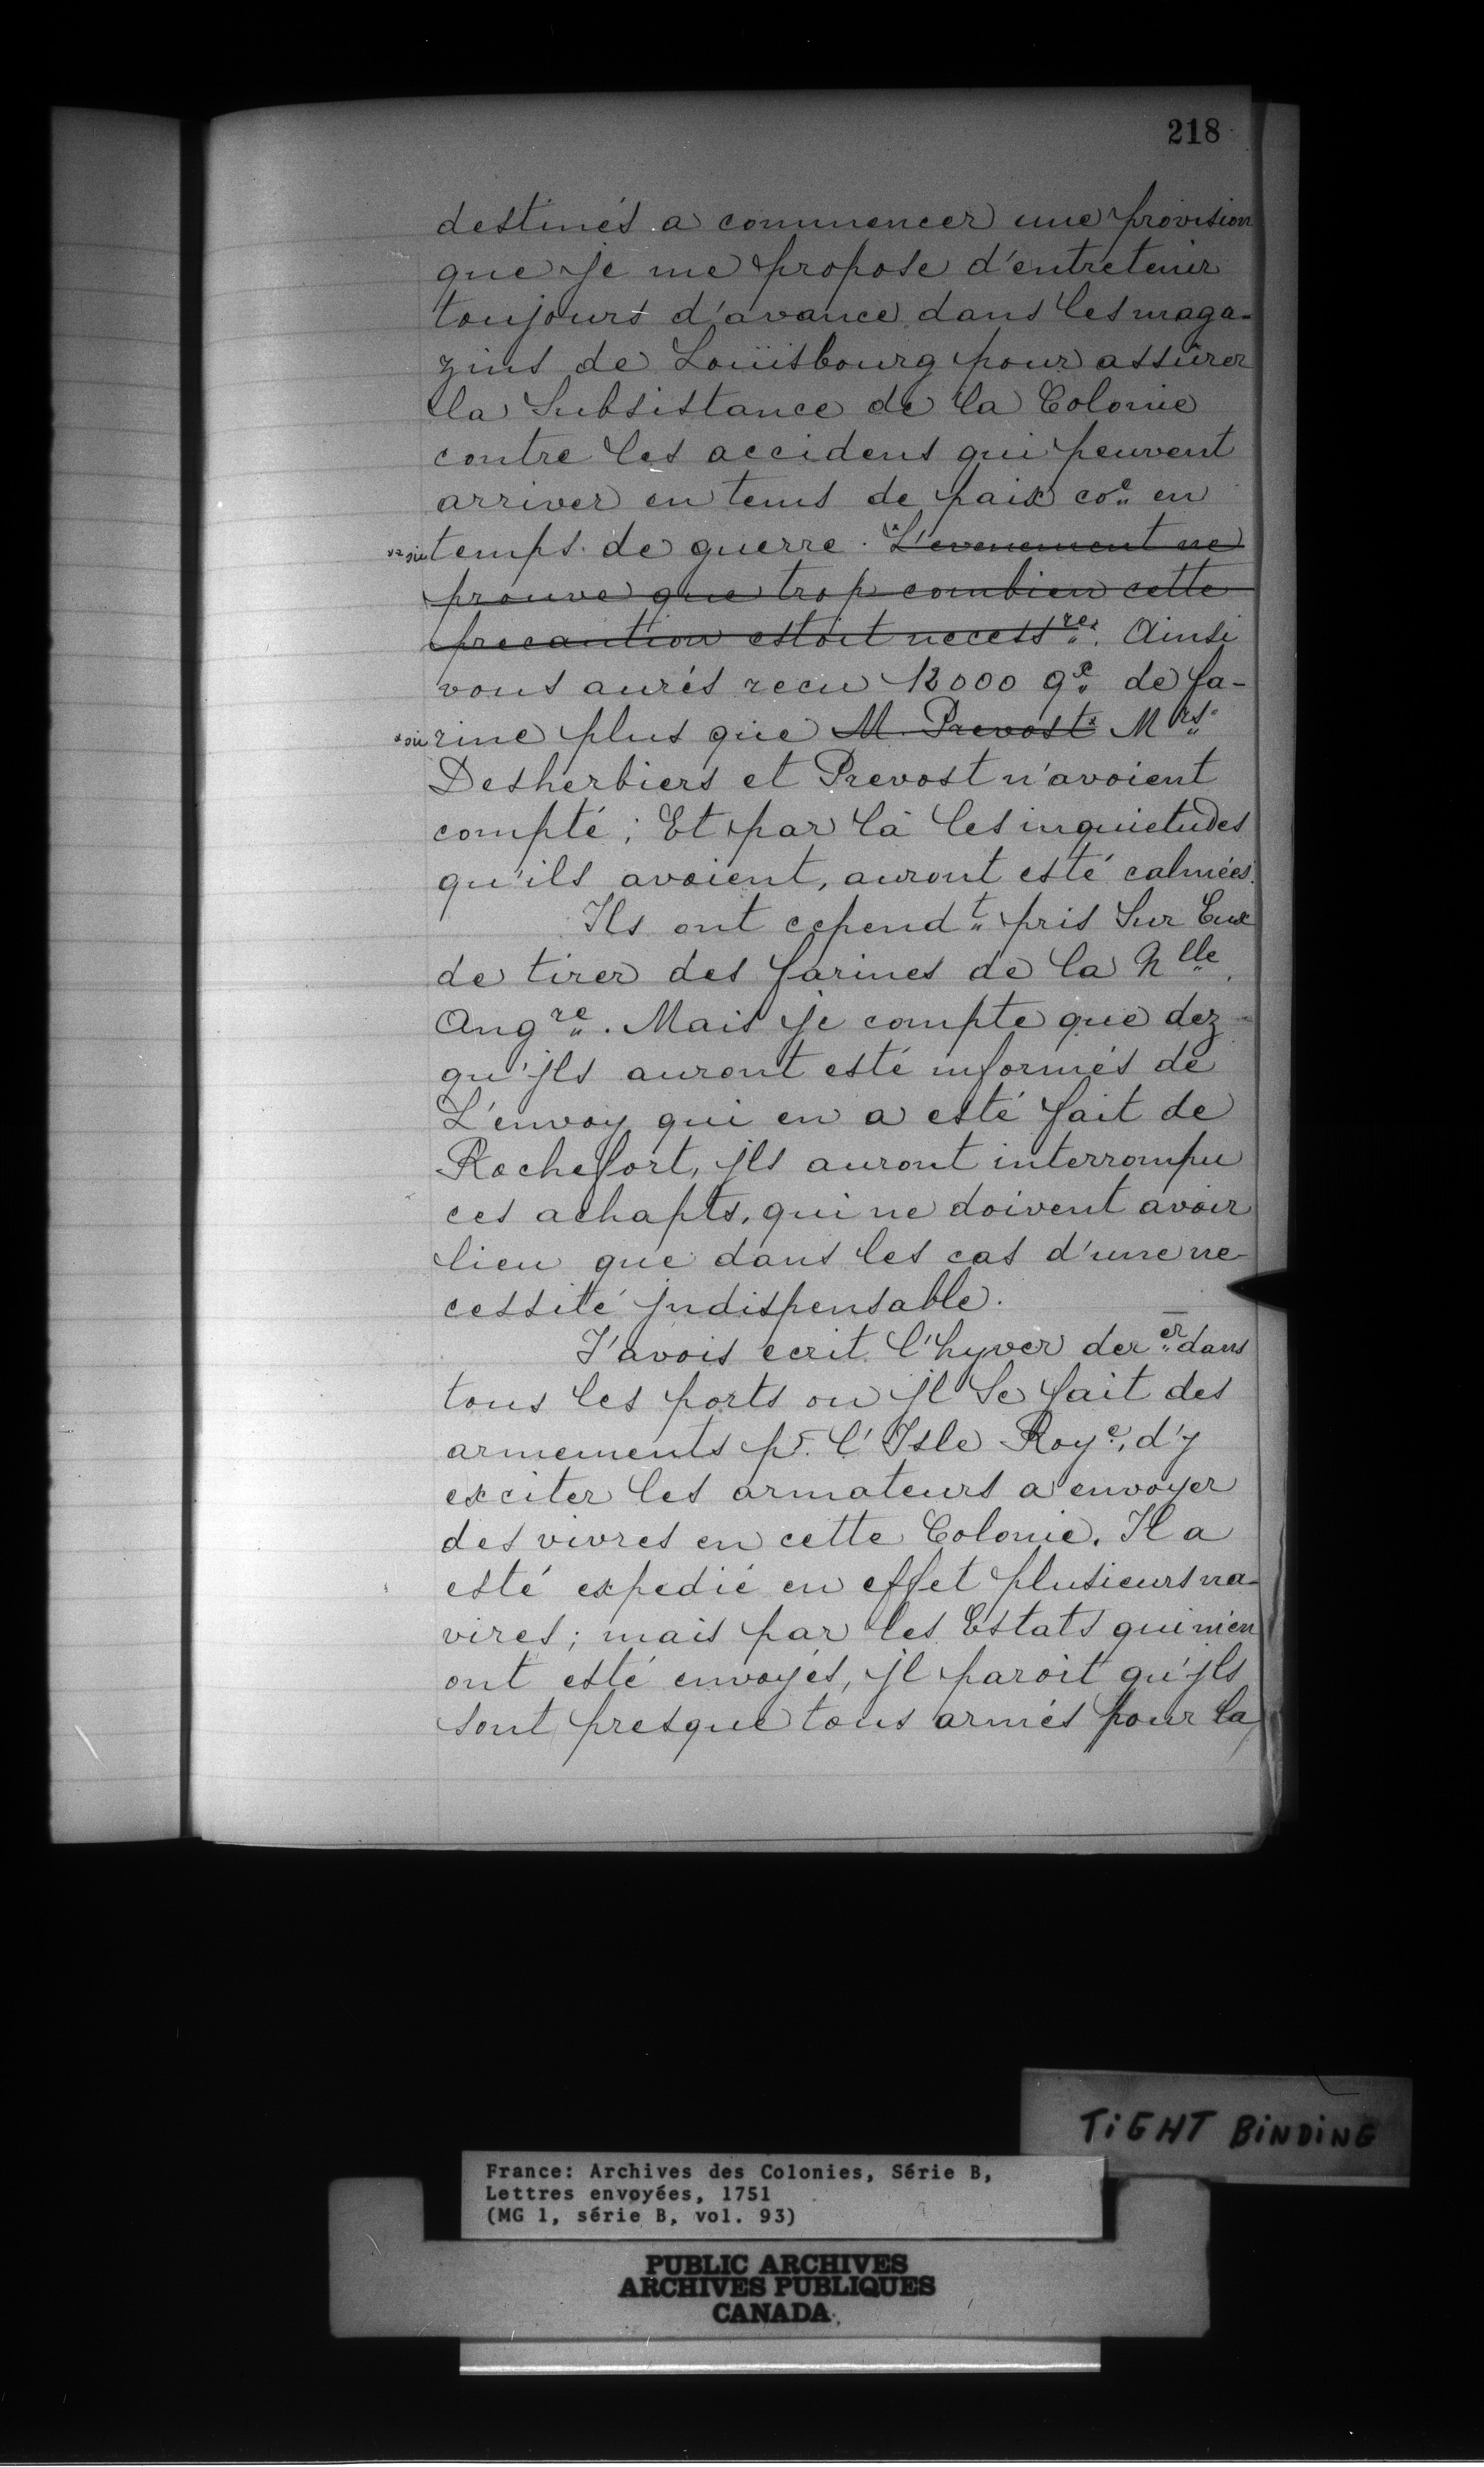 218
destinés a commencer une provision
que je me propose d'entretenir
toujours d'avance dans les maga-
zins de Louïsbourg pour assurer
la Subsistance de la Colonie
contre les accidens qui peuvent
arriver en tems de paix coe en
temps de guerre. L'evenement ne
prouve que trop combien cette
precaution estoit necessre. Ainsi
vous aurés recu 12000 qx de fa-
rine plus que M. Prevost Mrs
Desherbiers et Prevost n'avoient
compté; Et par là les inquietudes
qu'ils avoient, auront esté calmées.
Ils ont cependt pris Sur Eux
de tirer des farines de la Nlle
Angre. Mais je compte que dez
qu'jls auront esté informés de
L'envoy qui en a esté fait de
Rochefort, jls auront interrompu
ces achapts, qui ne doivent avoir
lieu que dans les cas d'une ne-
cessité jndispensable.
J'avois ecrit l'hyver derer dans
tous les ports ou jl Se fait des
armements pr. l'Isle Roye, d'y
exciter les armateurs a envoyer
des vivres en cette Colonie. Il a
esté expedié en effet plusieurs na-
vires; mais par les Estats qui m'en
ont esté envoyés, jl paroit qu'jls
sont presque tous armés pour la
TiGHT BiNDiNG
France: Archives des Colonies, Série B,
Lettres envoyées, 1751
(MG 1, série B, vol. 93)
PUBLIC ARCHIVES
ARCHIVES PUBLIQUES
CANADA